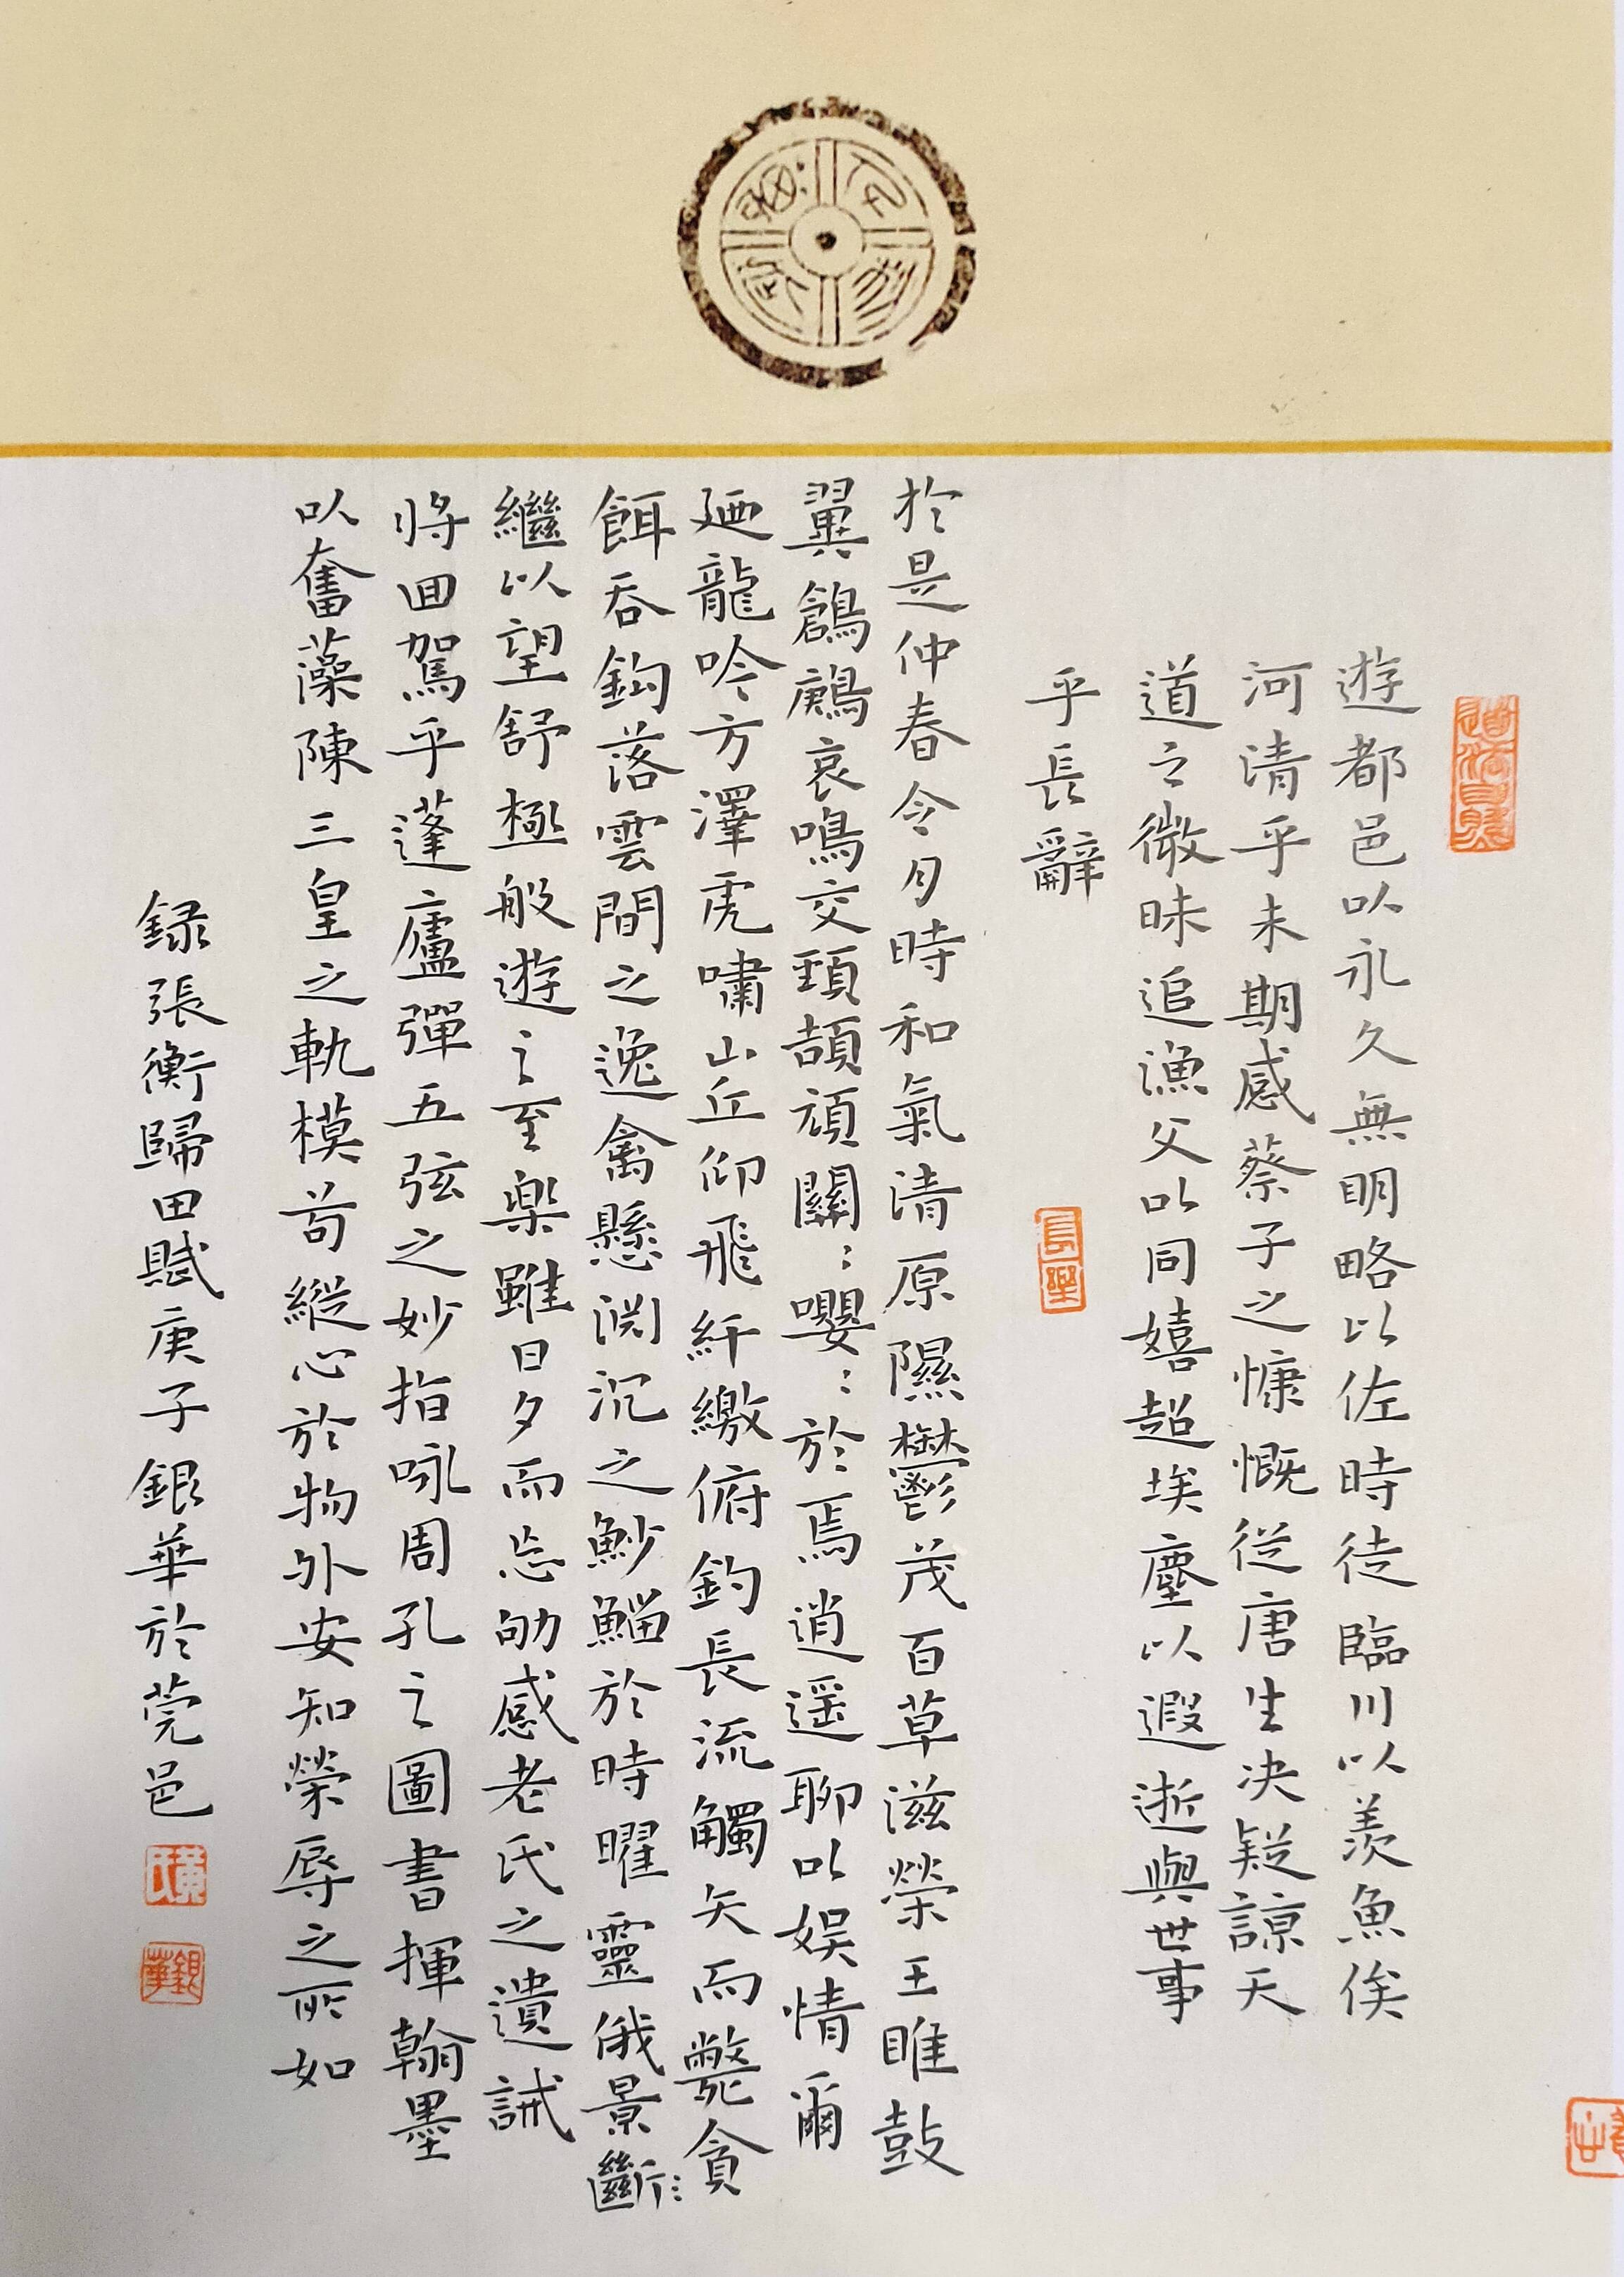 道法自然
遊都邑以永久無明略以佐時徒臨川以羨魚俟
河清乎未期感蔡子之慷慨従唐生决疑諒天
道之微昧追漁父以同嬉超埃塵以遐逝與世事
乎長辭
長樂
於是仲春令月時和氣清原隰鬱茂百草滋榮王雎鼓
翼鶬鶊哀鳴交頸頡頏關：嚶：於焉逍遥聊以娱情爾
廼龍吟方澤虎嘯山丘仰飛紆繳俯釣長流觸矢而斃貪
餌吞鈎落雲間之逸禽懸渕沉之魦鰡於時曜靈俄景斷：
繼以望舒極般遊之至楽雖日夕而忘劬感老氏之遺誡
将回駕乎蓬廬彈五弦之妙指咏周孔之圖書揮翰墨
以奮藻陳三皇之軌模苟縱心於物外安知榮辱之所如
録張衡歸田賦庚子銀華於莞邑
黃氏
銀華